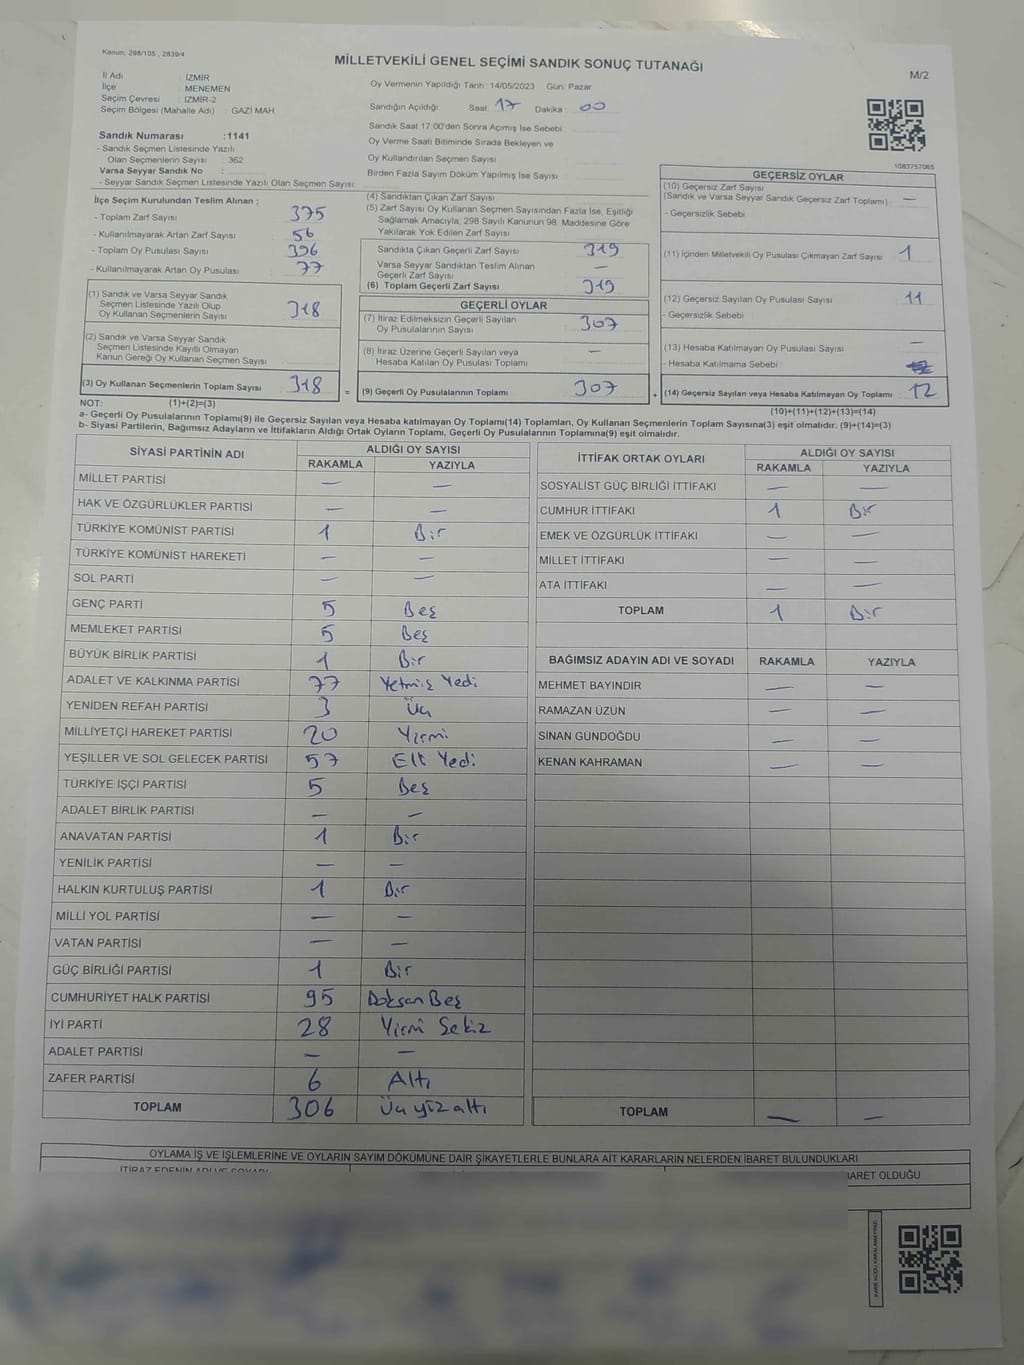 Kanun: 298/105 , 2839/4
MİLLETVEKİLİ GENEL SEÇİMİ SANDIK SONUÇ TUTANAĞI
M/2
İl Adı : İZMİR
İlçe : MENEMEN
Seçim Çevresi : İZMİR-2
Seçim Bölgesi (Mahalle Adı) : GAZİ MAH.
Oy Vermenin Yapıldığı Tarih : 14/05/2023 Gün: Pazar
Sandığın Açıldığı Saat: 17 Dakika : 00
Sandık Saat 17:00'den Sonra Açımış İse Sebebi :
Sandık Numarası :1141
- Sandık Seçmen Listesinde Yazılı
Olan Seçmenlerin Sayısı : 362
Varsa Seyyar Sandık No :
- Seyyar Sandık Seçmen Listesinde Yazılı Olan Seçmen Sayısı:
Oy Verme Saati Bitiminde Sırada Bekleyen ve
Oy Kullandırılan Seçmen Sayısı :
Birden Fazla Sayım Döküm Yapılmış İse Sayısı :
1083757065
İlçe Seçim Kurulundan Teslim Alınan ;
- Toplam Zarf Sayısı : 375
- Kullanılmayarak Artan Zarf Sayısı : 56
- Toplam Oy Pusulası Sayısı : 396
- Kullanılmayarak Artan Oy Pusulası : 77
(1) Sandık ve Varsa Seyyar Sandık
Seçmen Listesinde Yazılı Olup
Oy Kullanan Seçmenlerin Sayısı : 318
(2) Sandık ve Varsa Seyyar Sandık
Seçmen Listesinde Kayıtlı Olmayan
Kanun Gereği Oy Kullanan Seçmen Sayısı :
(3) Oy Kullanan Seçmenlerin Toplam Sayısı : 318 =
(4) Sandıktan Çıkan Zarf Sayısı :
(5) Zarf Sayısı Oy Kullanan Seçmen Sayısından Fazla İse, Eşitliği
Sağlamak Amacıyla; 298 Sayılı Kanunun 98. Maddesine Göre
Yakılarak Yok Edilen Zarf Sayısı :
Sandıkta Çıkan Geçerli Zarf Sayısı : 319
Varsa Seyyar Sandıktan Teslim Alınan
Geçerli Zarf Sayısı : —
(6) Toplam Geçerli Zarf Sayısı : 319
GEÇERLİ OYLAR
(7) İtiraz Edilmeksizin Geçerli Sayılan
Oy Pusulalarının Sayısı : 307
(8) İtiraz Üzerine Geçerli Sayılan veya
Hesaba Katılan Oy Pusulası Toplamı : —
(9) Geçerli Oy Pusulalarının Toplamı : 307 +
GEÇERSİZ OYLAR
(10) Geçersiz Zarf Sayısı
(Sandık ve Varsa Seyyar Sandık Geçersiz Zarf Toplamı) : —
- Geçersizlik Sebebi :
(11) İçinden Milletvekili Oy Pusulası Çıkmayan Zarf Sayısı : 1
(12) Geçersiz Sayılan Oy Pusulası Sayısı : 11
- Geçersizlik Sebebi :
(13) Hesaba Katılmayan Oy Pusulası Sayısı : —
- Hesaba Katılmama Sebebi :
(14) Geçersiz Sayılan veya Hesaba Katılmayan Oy Toplamı : 12
NOT: (1)+(2)=(3) (10)+(11)+(12)+(13)=(14)
a- Geçerli Oy Pusulalarının Toplamı(9) ile Geçersiz Sayılan veya Hesaba katılmayan Oy Toplamı(14) Toplamları, Oy Kullanan Seçmenlerin Toplam Sayısına(3) eşit olmalıdır. (9)+(14)=(3)
b- Siyasi Partilerin, Bağımsız Adayların ve İttifakların Aldığı Ortak Oyların Toplamı, Geçerli Oy Pusulalarının Toplamına(9) eşit olmalıdır.
SİYASİ PARTİNİN ADI ALDIĞI OY SAYISI
RAKAMLA YAZIYLA
MİLLET PARTİSİ — —
HAK VE ÖZGÜRLÜKLER PARTİSİ — —
TÜRKİYE KOMÜNİST PARTİSİ 1 Bir
TÜRKİYE KOMÜNİST HAREKETİ — —
SOL PARTİ — —
GENÇ PARTİ 5 Beş
MEMLEKET PARTİSİ 5 Beş
BÜYÜK BİRLİK PARTİSİ 1 Bir
ADALET VE KALKINMA PARTİSİ 77 Yetmiş Yedi
YENİDEN REFAH PARTİSİ 3 Üç
MİLLİYETÇİ HAREKET PARTİSİ 20 Yirmi
YEŞİLLER VE SOL GELECEK PARTİSİ 57 Elli Yedi
TÜRKİYE İŞÇİ PARTİSİ 5 Beş
ADALET BİRLİK PARTİSİ — —
ANAVATAN PARTİSİ 1 Bir
YENİLİK PARTİSİ — —
HALKIN KURTULUŞ PARTİSİ 1 Bir
MİLLİ YOL PARTİSİ — —
VATAN PARTİSİ — —
GÜÇ BİRLİĞİ PARTİSİ 1 Bir
CUMHURİYET HALK PARTİSİ 95 Doksan Beş
İYİ PARTİ 28 Yirmi Sekiz
ADALET PARTİSİ — —
ZAFER PARTİSİ 6 Altı
TOPLAM 306 Üç yüz altı
İTTİFAK ORTAK OYLARI ALDIĞI OY SAYISI
RAKAMLA YAZIYLA
SOSYALİST GÜÇ BİRLİĞİ İTTİFAKI — —
CUMHUR İTTİFAKI 1 Bir
EMEK VE ÖZGÜRLÜK İTTİFAKI — —
MİLLET İTTİFAKI — —
ATA İTTİFAKI — —
TOPLAM 1 Bir
BAĞIMSIZ ADAYIN ADI VE SOYADI RAKAMLA YAZIYLA
MEHMET BAYINDIR — —
RAMAZAN ÜZÜN — —
SİNAN GÜNDOĞDU — —
KENAN KAHRAMAN — —
TOPLAM — —
OYLAMA İŞ VE İŞLEMLERİNE VE OYLARIN SAYIM DÖKÜMÜNE DAİR ŞİKAYETLERLE BUNLARA AİT KARARLARIN NELERDEN İBARET BULUNDUKLARI
İTİRAZ EDENİN ADI VE SOYADI
BARET OLDUĞU